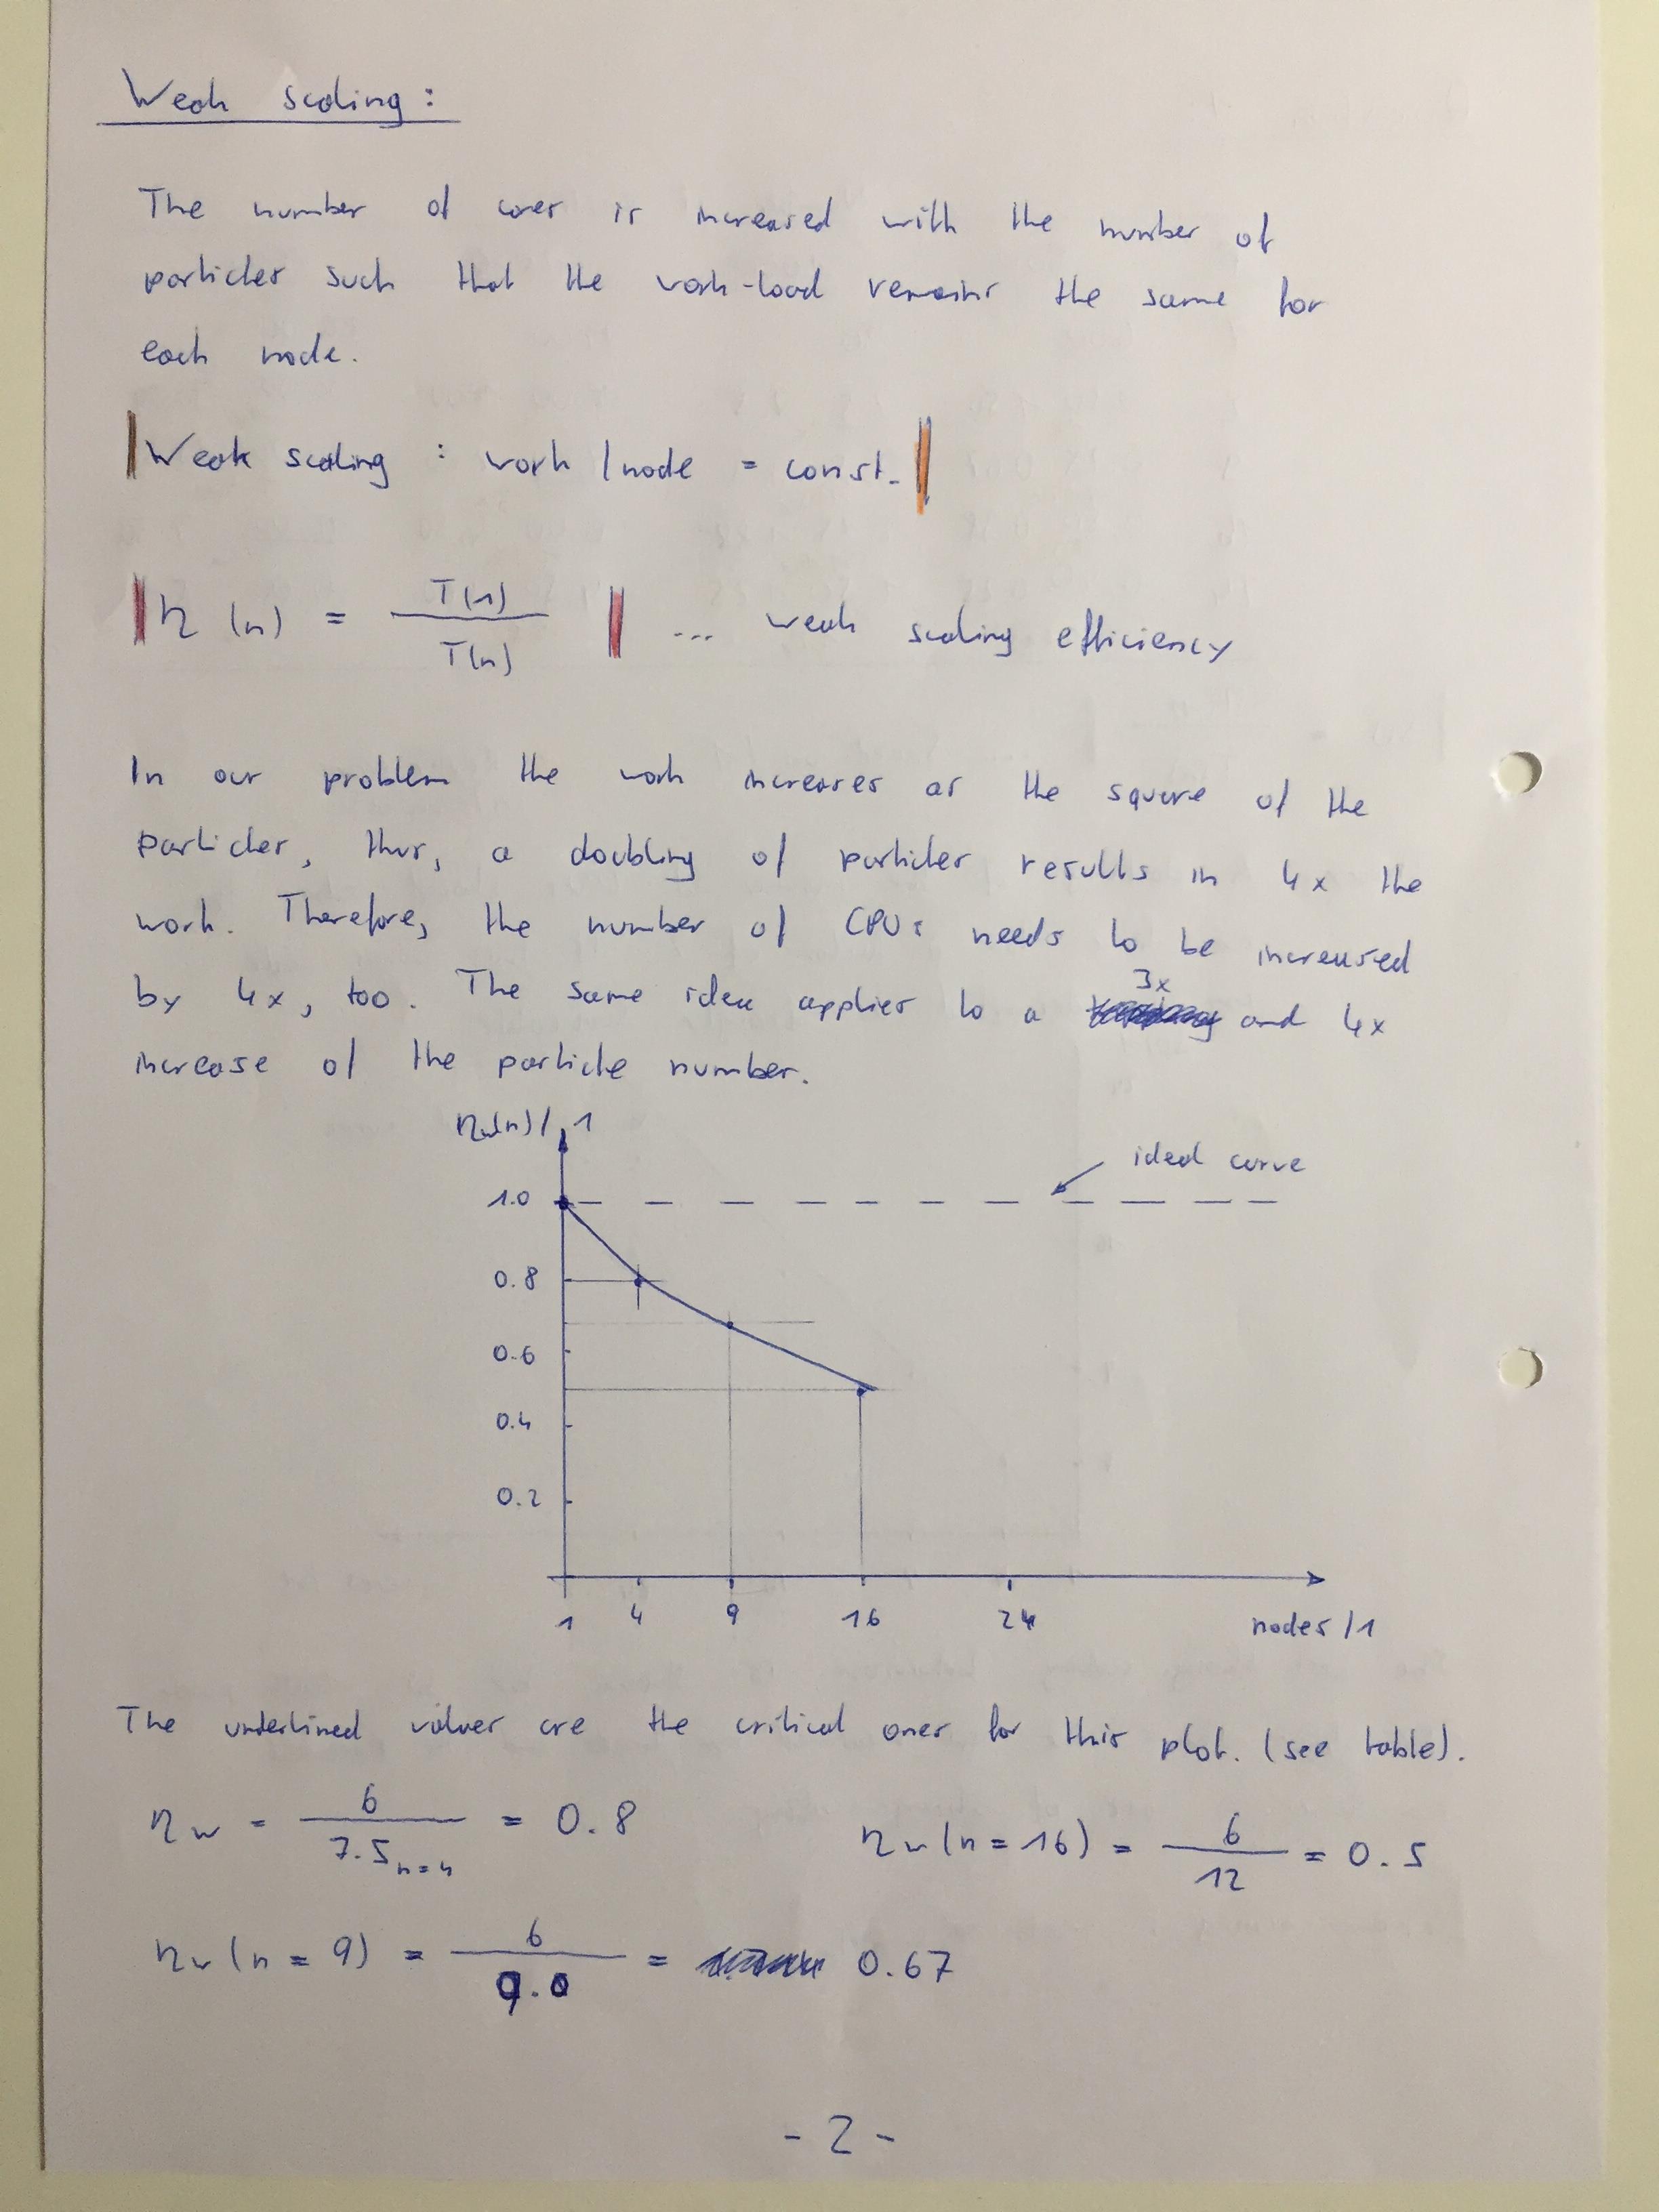 Weak scaling:
The number of cores is increased with the number of
particles such that the work-load remains the same for
each node.
Weak scaling : work / node = const.
η (n) = T(1) / T(n) ... weak scaling efficiency
In our problem the work increases as the square of the
particles, thus, a doubling of particles results in 4x the
work. Therefore, the number of CPUs needs to be increased
by 4x, too. The same idea applies to a 3x and 4x
increase of the particle number.
ηw(n) / 1
1.0
0.8
0.6
0.4
0.2
ideal curve
1 4 9 16 24
nodes / 1
The underlined values are the critical ones for this plot. (see table).
ηw = 6 / 7.5 n=4 = 0.8
ηw (n = 16) = 6 / 12 = 0.5
ηw (n = 9) = 6 / 9.0 = 0.67
- 2 -